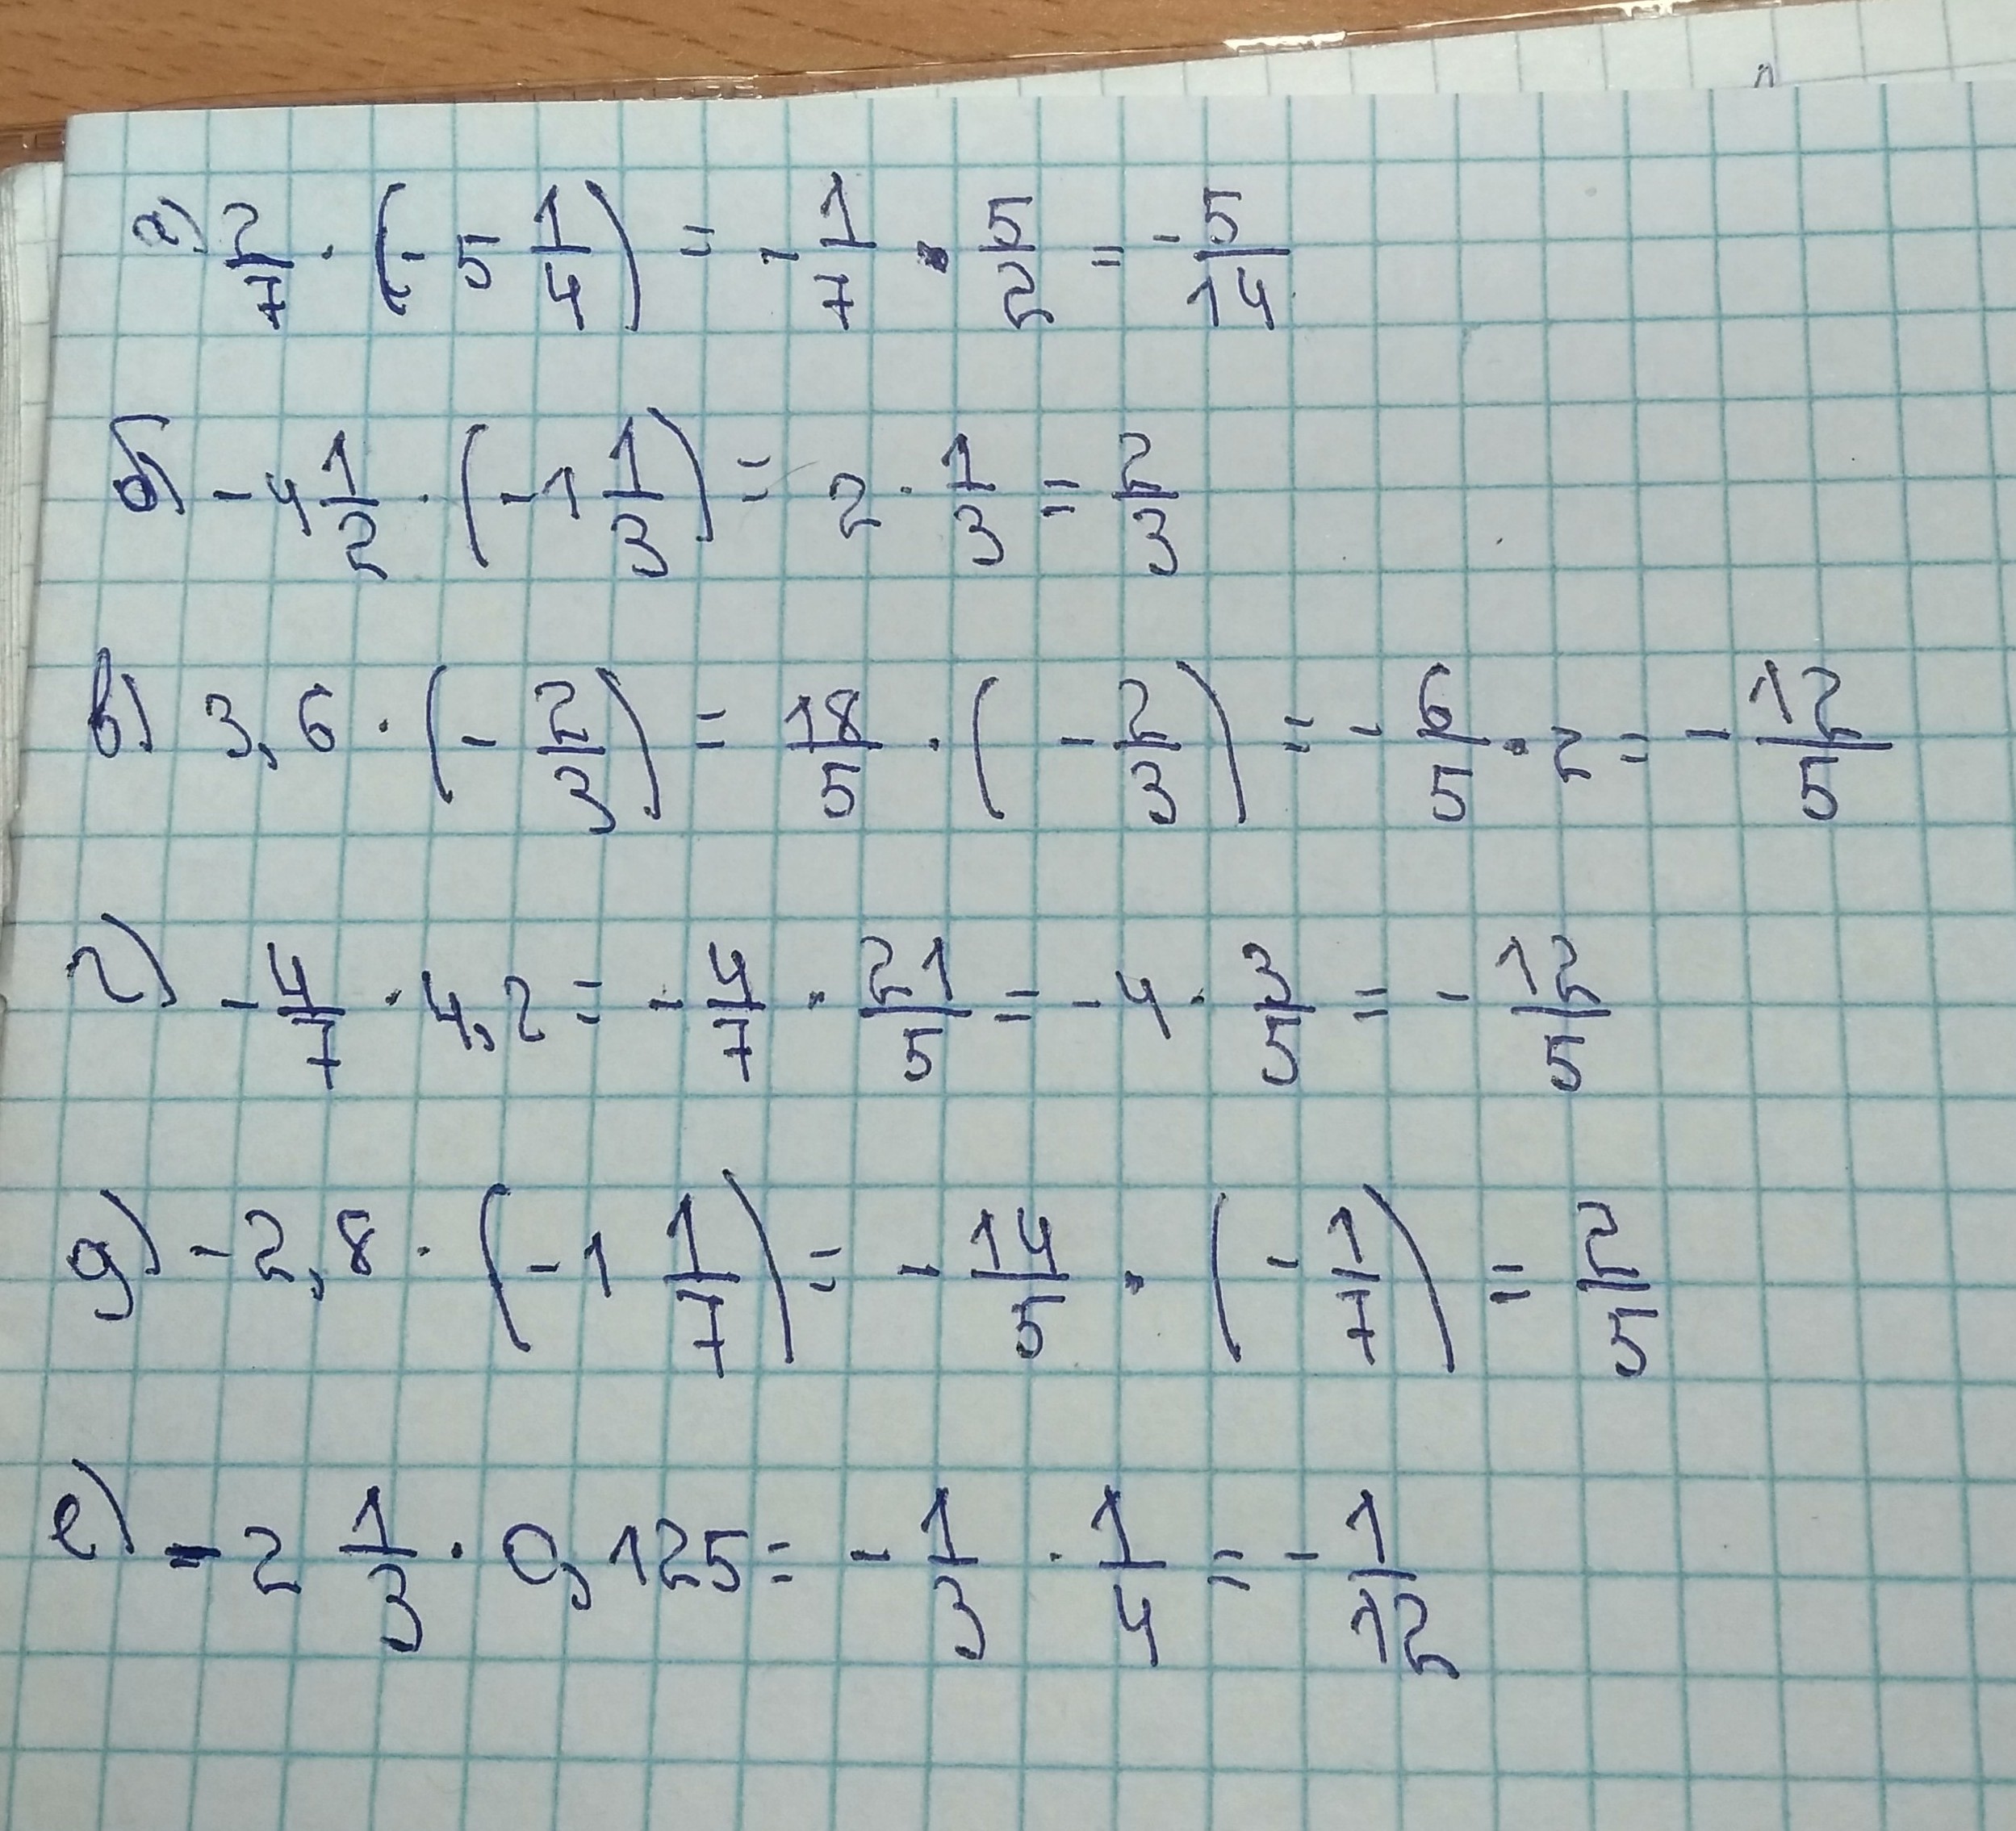 а) 2/7 · (- 5 1/4) = - 1/7 · 5/2 = - 5/14
б) - 4 1/2 · (-1 1/3) = 2 · 1/3 = 2/3
в) 3,6 · (- 2/3) = 18/5 · (- 2/3) = - 6/5 · 2 = - 12/5
г) - 4/7 · 4,2 = - 4/7 · 21/5 = - 4 · 3/5 = - 12/5
д) - 2,8 · (-1 1/7) = - 14/5 · (- 1/7) = 2/5
е) - 2 1/3 · 0,125 = - 1/3 · 1/4 = - 1/12